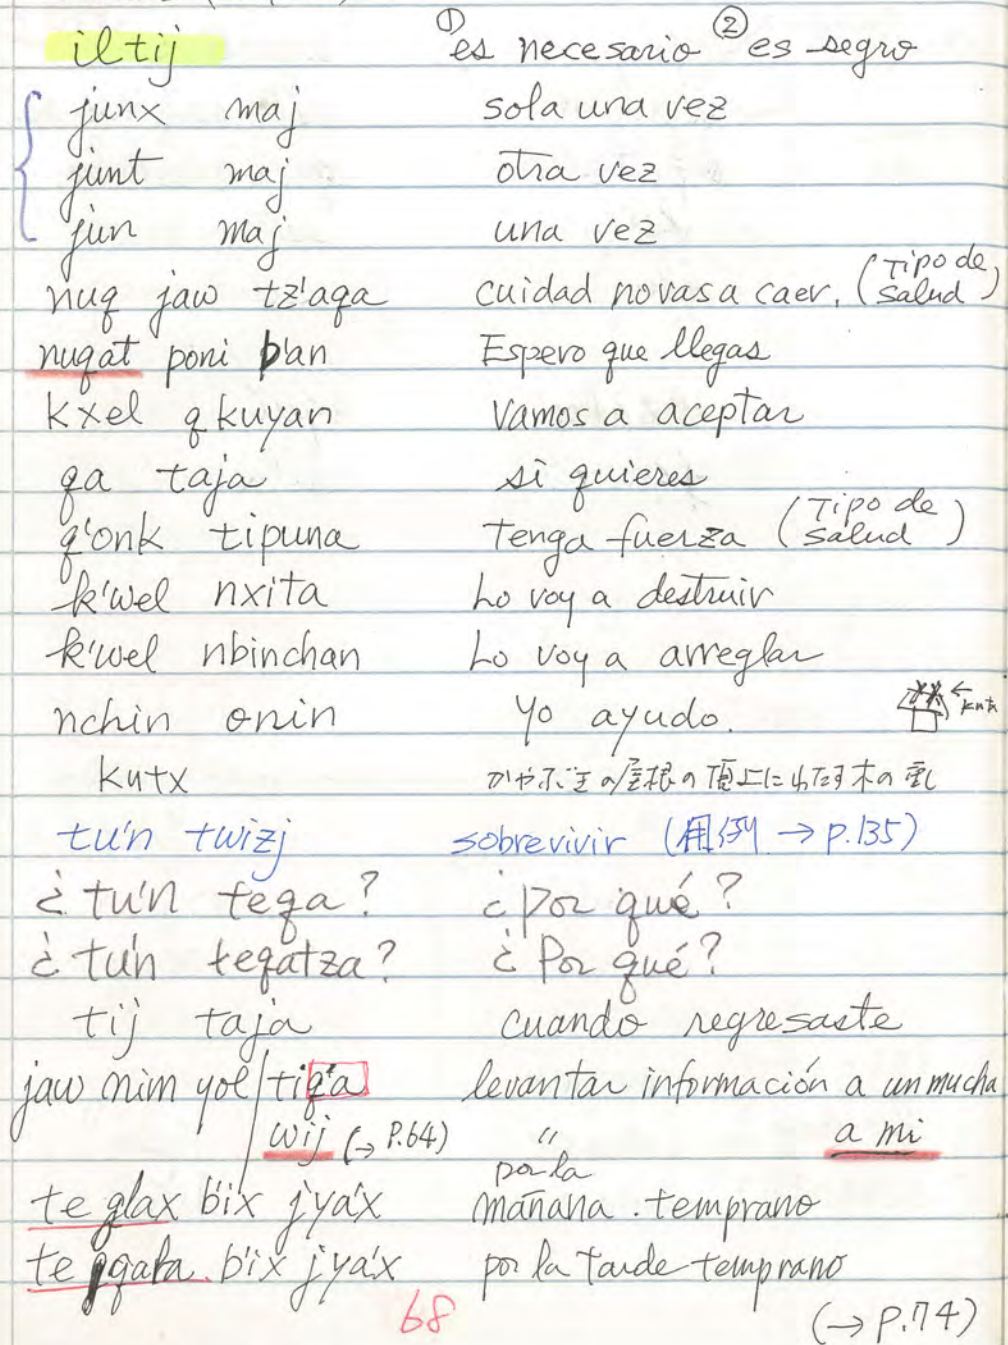 iltij ①es necesario ②es segro
junx maj sola una vez
junt maj otra vez
jun maj una vez
nuq jaw tz'aqa cuidad no vas a caer. (Tipo de salud)
nuqat poni b'an Espero que llegas
kxel q kuyan Vamos a aceptar
qa taja si quieres
q'onk tipuna Tenga fuerza (Tipo de salud)
k'wel nxita Lo voy a destruir
k'wel nbinchan Lo voy a arreglar
nchin onin Yo ayudo. ← kutx
kutx かやぶきの屋根の頂上にわたす木の
tu'n twizj sobrevivir (用例 → p.135)
¿tu'n teqa? ¿Por qué?
¿tu'n teqatza? ¿Por qué?
tij taja cuando regresaste
jaw nim yol / tiq'a levantar información a un mucha
wij (→ P.64) 〃 a mi
te qlax b'ix jya'x por la mañana. temprano
te qqala b'ix jya'x por la tarde temprano
68 (→ P.74)